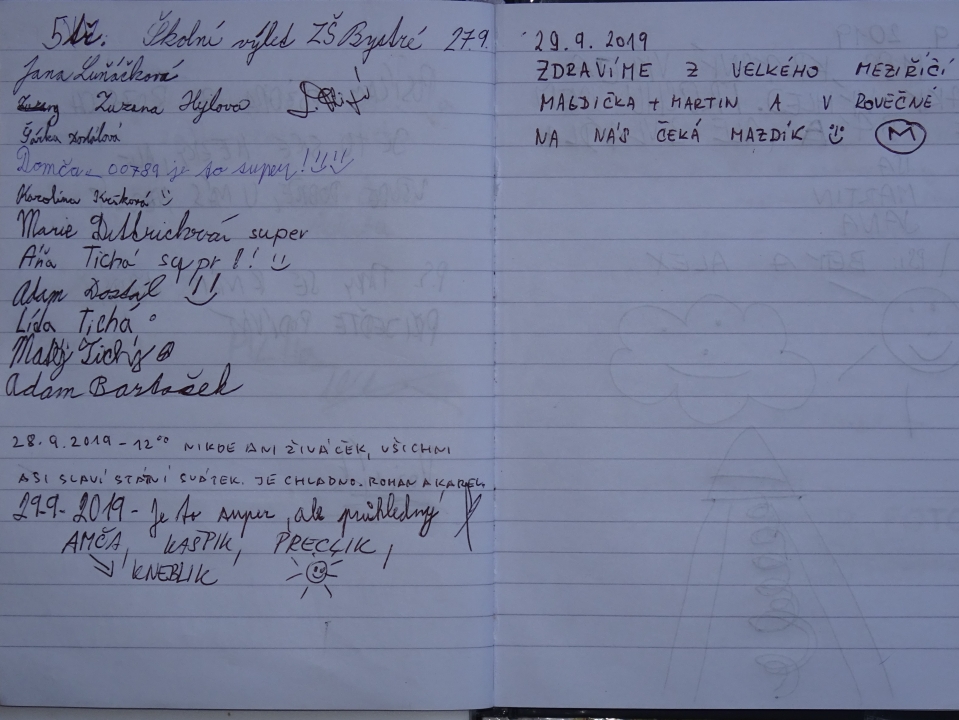 5tř. Školní výlet ZŠ Bystré 27.9.
Jana Luňáčková
Zuzana Hýlova
Šárka Dostálová
Domča 00789 je to super!!
Karolína Kršková
Marie Dittrichová super
Áňa Tichá sqpr!!
Adam Dostál !!
Lída Tichá
Matěj Tichý
Adam Bartošek
28.9.2019 - 12⁰⁰ NIKDE ANI ŽIVÁČEK, VŠICHNI
ASI SLAVÍ STÁTNÍ SVÁTEK. JE CHLADNO. ROMAN A KAREL
29.9- 2019 - je to super, ale průhledný
AMČA, KAŠPIK, PRECLIK,
KNEBLIK
29.9.2019
ZDRAVÍME Z VELKÉHO MEZIŘÍČÍ
MAGDIČKA + MARTIN A V ROVEČNÉ
NA NÁS ČEKÁ MAZDÍK M